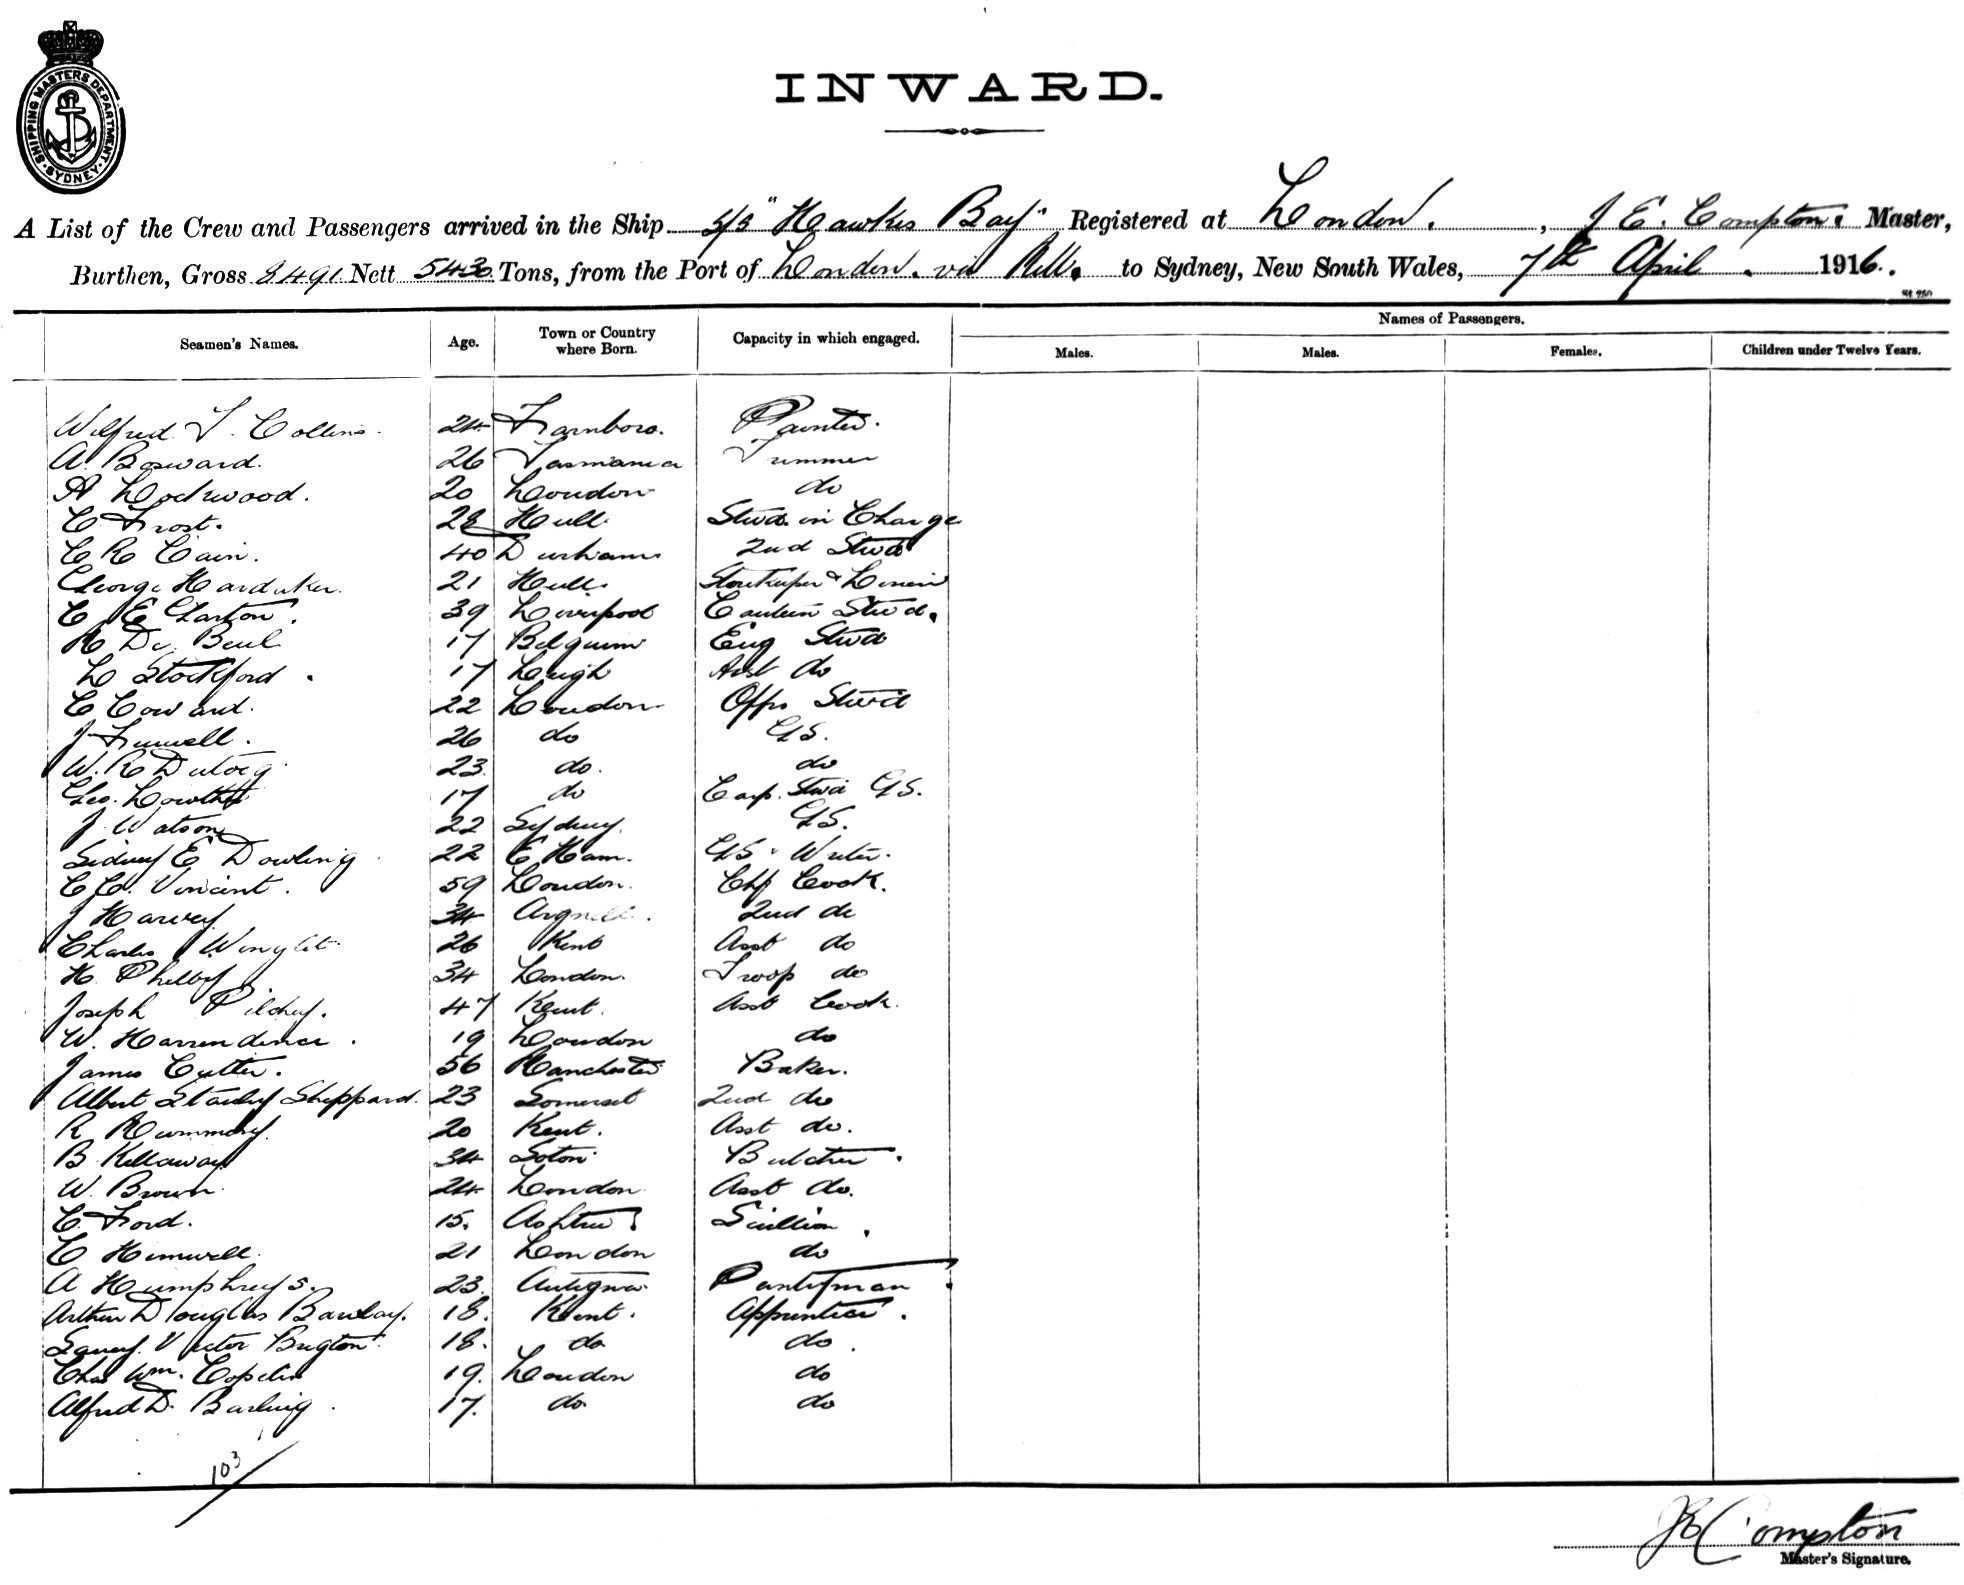 SHIPPING MASTERS DEPARTMENT SYDNEY
INWARD.
A List of the Crew and Passengers arrived in the Ship S/S "Hawkes Bay" Registered at London. , J E. Compton. Master,
Burthen, Gross 8491. Nett 5430. Tons, from the Port of London. via to Sydney, New South Wales, 7th April. 1916.
Seamen's Names. Age. Town or Country where Born. Capacity in which engaged. Names of Passengers.
Males. Males. Females. Children under Twelve Years.
Wilfred T. Collins. 24. Farnboro. Painter.
A. Bosward. 26 Tasmania Trimmer
A Lockwood. 20 London do
C Frost. 28 Hull Stwd. in Charge
C R Cain. 40 Durham 2nd Stwd
George Hardaker. 21 Hull. Storekeeper & Linen
C E Garton. 39 Liverpool Canteen Stwd.
R De Beul 17 Belguim Eng Stwd
L Stockford. 17 Leigh Asst do
C Coward. 22 London Offrs Stwd
J 26 do GS.
W. R 23. do. do
Geo. Lowther 17 do Capt. Stwd GS.
J Watson 22 Sydney. GS.
Sidney E Dowling 22 E Ham. GS & Writer.
C Vincent. 59 London. Chf Cook.
J Harvey 34 2nd do
Charles 26 Kent Asst do
H. Philby 34 London. Troop do
Joseph Pilcher. 47 Kent. Asst Cook.
W. Harrendence. 19 London do
James Cutter. 56 Manchester Baker.
Albert Stanley Sheppard. 23 Somerset 2nd do
R Rummery. 20 Kent. Asst do.
B Kellaway 34 Soton Butcher.
W. Brown. 24. London Asst do.
C. Ford. 15. Scullion.
C 21 London do
A Humphreys. 23. Antigua Pantryman
Arthur Douglas Barclay. 18. Kent. Apprentice.
Victor 18. do do.
Chas Wm. Copelin 19. London do
Alfred D. Barling. 17. do do
103
J E Compton
Master's Signature.